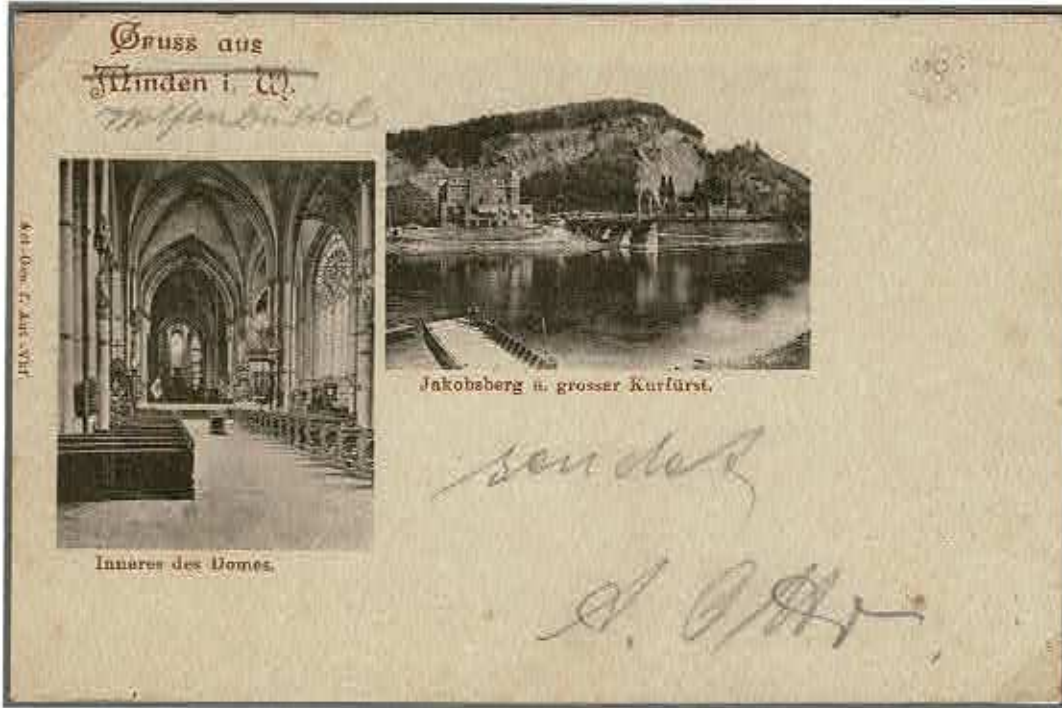 Gruss aus
Minden i. W.
Wolfenbüttel
Jakobsberg u. grosser Kurfürst.
Inneres des Domes.
sendet
A. Otto